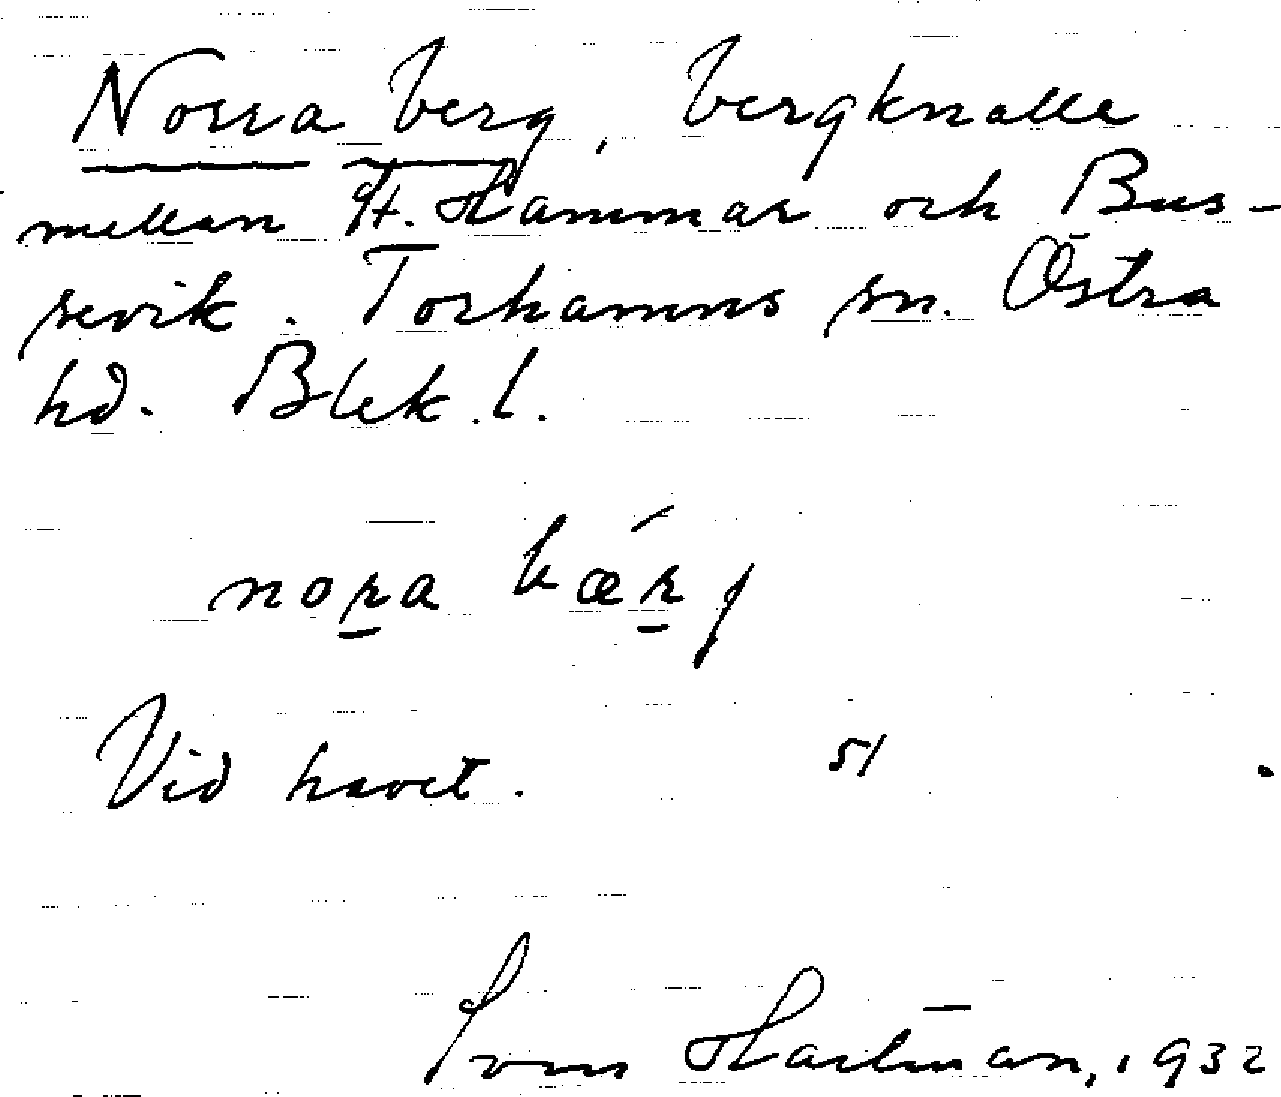 Norra berg, bergknalle
mellan St. Hammar och Bus-
sevik. Torhamns sn. Östra
hd. Blek. l.
nora bærj
Vid havet. 51
Hartman, 1932